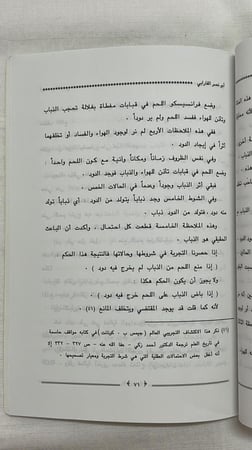 ابو نصر الفارابي
وضع فرانسيسكو اللحم في قبابات مغطاة بغلالة تحجب الذباب
وتأذن للهواء ففسد اللحم ولم ير دوداً .
ففي هذه الملاحظات الأربع لم نر لوجود الهواء والفساد أو تخلفهما
اثراً في إيجاد الدود .
وفي نفس الظروف زماناً ومكاناً وآنية مع كون اللحم واحداً ،
وضع اللحم في قبابات للهواء والذباب فوجد الدود .
فبقي أثر الذباب وجوداً وعدماً في الحالات الخمس .
وفي الشوط الخامس وجد ذباباً يتولد من الدود . أي ذباباً تولد
منه دود، فتولد من الدود ذباب .
وهذه الملاحظة الخامسة قطعت كل احتمال، وأكدت أن الباعث
الحقيقي هو الذباب .
إذا حصرنا التجربة في شروطها وحالاتها، فالنتيجة هذا الحكم
( إذا منع اللحم من الذباب لم يخرج فيه دود ) .
ولا يجوز أن يكون الحكم هكذا :
( إذا باض الذباب على اللحم خرج فيه دود ) .
لأنه كما قلت قد يوجد المقتضي ويتخلف المانع (٧١) .
(٧١) ذكر هذا الاكتشاف التجريبي العالم ( جيمس ب . كونانت ) في كتابه مواقف حاسمة
في تاريخ العلم ترجمة الدكتور أحمد زكي - عفا الله عنه - ص ٣٢٧ - ٣٣٢ إلا
أنه أغفل بعض الاحتمالات العقلية التي هي شرط التجربة ومعيار تصحيحها .
٧١